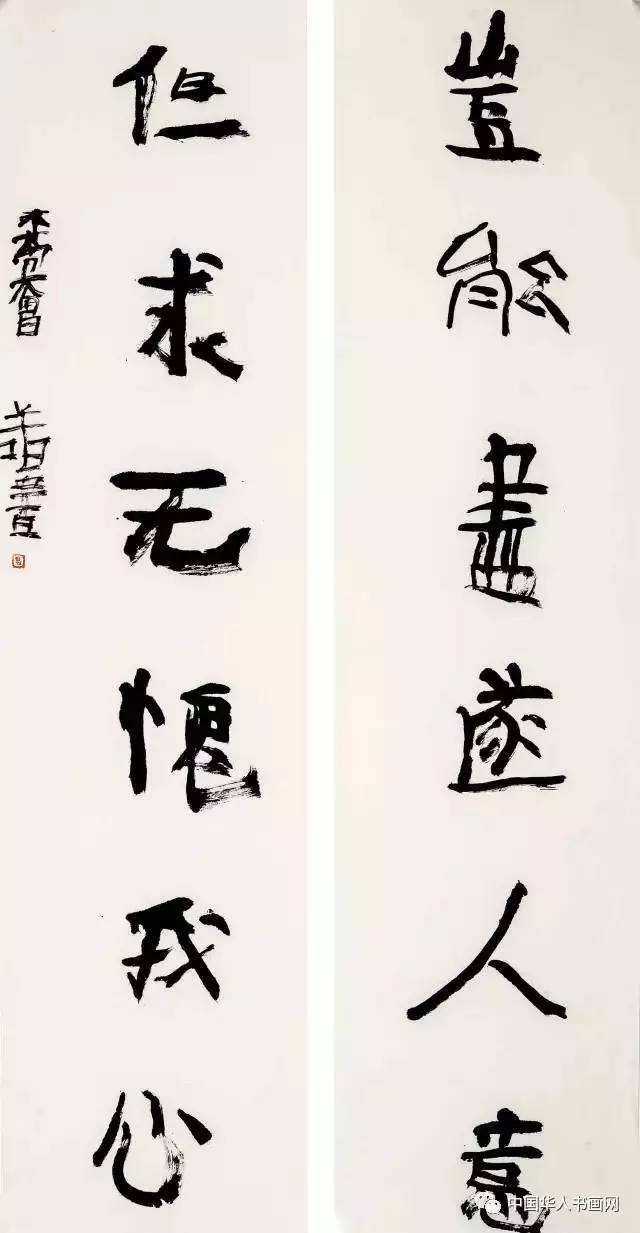 豈能盡遂人意
但求无愧我心
中国华人书画网